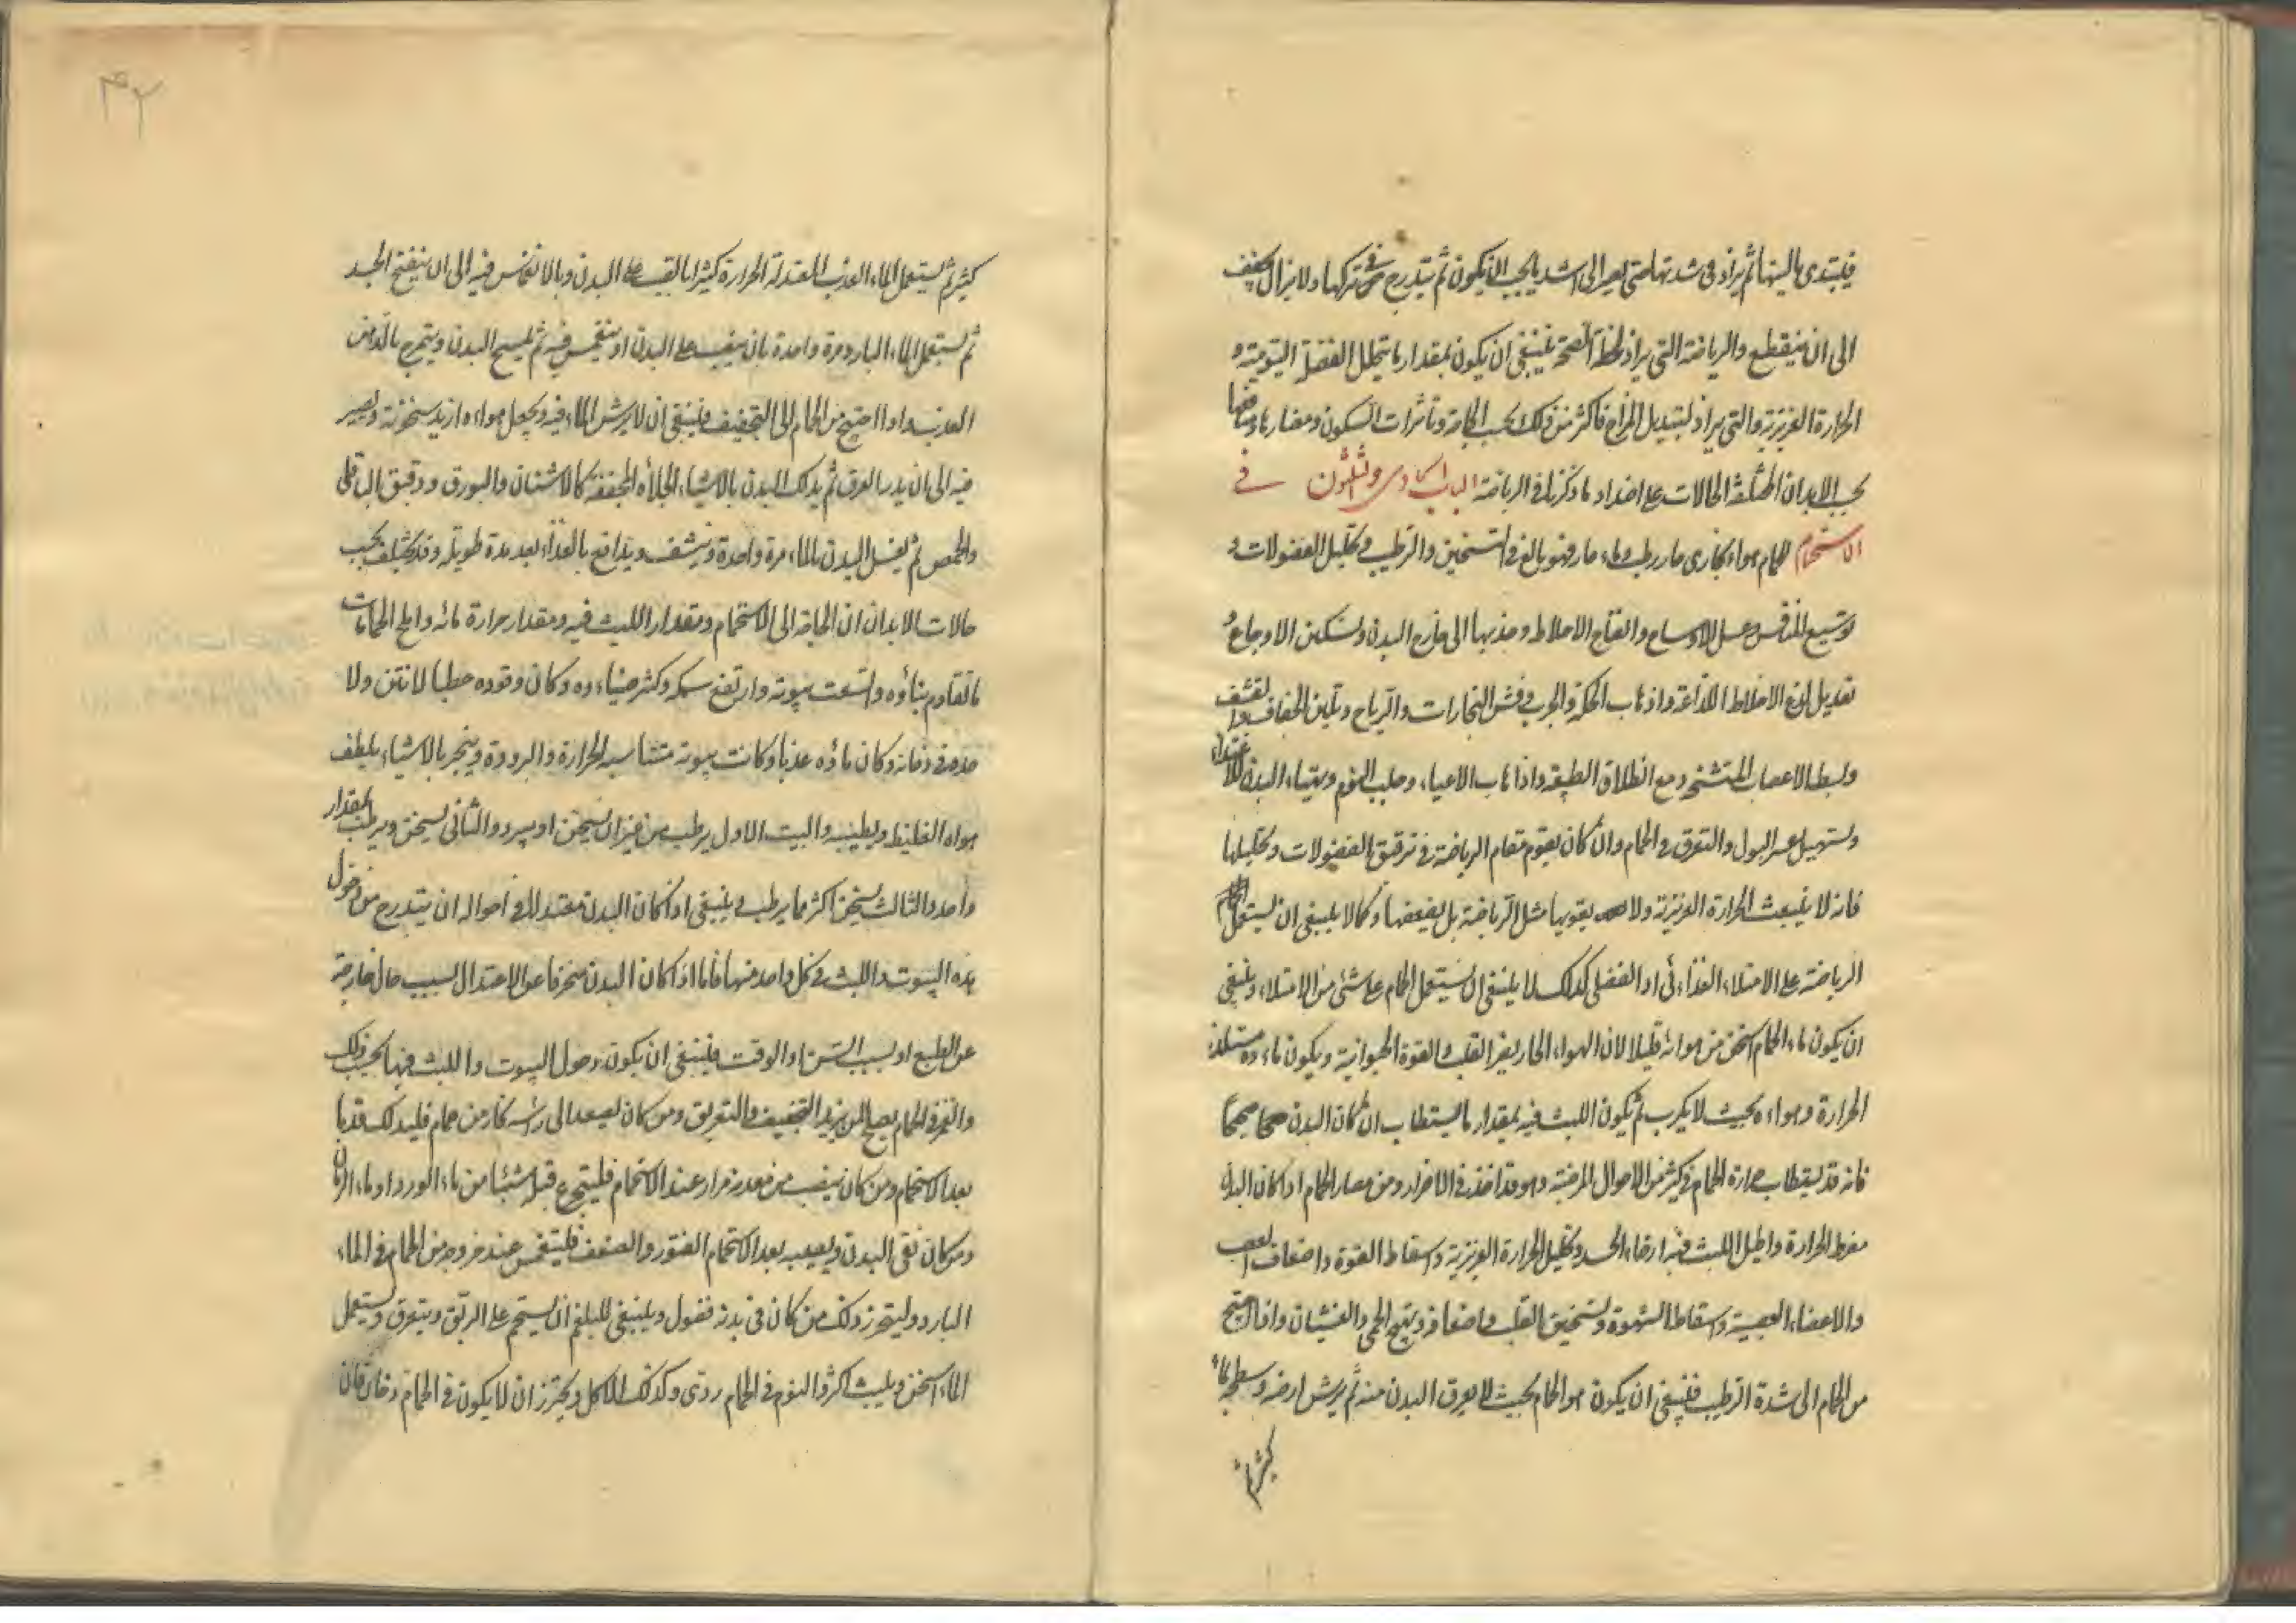 فليبتدى بالينها ثم يزاد فى شدتها حتى يصير الى اشد ما يجب ان يكون ثم يتدرج فى تركها ولا يزال يخفف
الى ان ينقطع والرياضة التى يراد لحفظ الصحة فينبغى ان يكون بمقدار ما يتحلل الفضلة اليومية و
الحرارة الغريزية والتى يراد لتبديل المزاج فاكثر من ذلك بحسب الحاجة وتأثيرات السكون ومضاره ومنافعها
بحسب الابدان المختلفة الحالات على اضداد ما ذكرنا فى الرياضة الباب الحادى والثلثون فى
الاستحمام الحمام هواء بخارى حار رطب وماء حار فهو بالغ فى التسخين والترطيب وتحليل الفضولات و
توسيع المنافس وغسل الاوساخ وانضاج الاخلاط وجذبها الى خارج البدن وتسكين الاوجاع و
تعديل لذع الاخلاط اللذاعة واذهاب الحكة والجرب وفش البخارات والرياح وتليين الجفاف والقشف
وبسط الاعصاب المتشنج ومنع انطلاق الطبيعة واذهاب الاعياء وجلب النوم وتهياء البدن للاغتذاء
وتسهيل عسر البول والتعرق فى الحمام وان كان يقوم مقام الرياضة فى ترقيق الفضولات وتحليلها
فانه لا ينبعث الحرارة الغريزية ولا يقويها مثل الرياضة بل يضعفها وكما لا ينبغى ان يستعمل
الرياضة على الامتلاء الغذائى او الفضلى كذلك لا ينبغى ان يستعمل الحمام على شئ من الامتلاء وينبغى
ان يكون ماء الحمام اسخن من هوائه قليلا لان الهواء الحار يضر القلب والقوة الحيوانية ويكون ماءه مستلذ
الحرارة وهواءه بحيث لا يكرب ثم يكون اللبث فيه بمقدار ما يستطاب ان كان البدن صحيحا
فانه قد يستطاب حرارة الحمام فى كثير من الاحوال المرضية وهو قد اخذ فى الاضرار ومن مضار الحمام اذا كان البدن
مفرط الحرارة واطيل اللبث فيه ارخاء الجسد وتحليل الحرارة الغريزية واسقاط القوة واضعاف العصب
والاعضاء العصبية واسقاط الشهوة وتسخين القلب واضعافه وتهيج الحمى والغشيان واذا احتيج
من الحمام الى شدة الترطيب فينبغى ان يكون هواء الحمام بحيث لا يعرق البدن منه ثم يرش ارضه وسطحه بماء
كثير
٤٢
كثير ثم يستعمل الماء العذب المعتدلة الحرارة كثيرا بالصب على البدن وبالانغماس فيه الى ان ينتفخ الجسد
ثم يستعمل الماء البارد مرة واحدة بان يصب على البدن او ينغمس فيه ثم يمسح البدن ويتمرخ بالدهن
العذب واذا احتيج من الحمام الى التجفيف فينبغى ان لا يرش الماء فيه ويجعل هواءه ازيد سخونة ويصبر
فيه الى ان يدر العرق ثم يدلك البدن بالاشياء الجلاءة المجففة كالاشنان والبورق ودقيق الباقلى
والحمص ثم يغسل البدن بالماء مرة واحدة وينشف ويدافع بالغذاء بعد مدة طويلة وقد يختلف بحسب
حالات الابدان ان الحاجة الى الاستحمام ومقدار اللبث فيه ومقدار حرارة مائه واصلح الحمامات
ما تقادم بناؤه واتسعت بيوته وارتفع سمكه وكثر ضياءه وكان وقوده حطبا لا نتن ولا
حدة فى دخانه وكان ماؤه عذبا وكانت بيوته متناسبه الحرارة والبرودة ويبخر بالاشياء يلطف
هواه الغليظ ويطيبه والبيت الاول يرطب من غير ان يسخن او يبرد والثانى يسخن ويرطب بمقدار
واحد والثالث يسخن اكثر مما يرطب وينبغى اذا كان البدن معتدلا فى احواله ان يتدرج من دخول
هذه البيوت واللبث فى كل واحد منها فاما اذا كان البدن منحرفا عن الاعتدال بسبب حال خارجة
عن الطبع او بسبب السن او الوقت فينبغى ان يكون دخول البيوت واللبث فيها بحسب ذلك
والغمز فى الحمام يصلح لمن يريد التجفيف والتعريق ومن كان يصعد الى رأسه بخار من حمام فليدلك قدميه
بعد الاستحمام ومن كان ينصب من معدته مرار عند الاستحمام فليتجرع قبله شيئا من ماء الورد او ماء الرمان
ومن كان نقى البدن ويصيبه بعد الاستحمام الفتور والضعف فلينغمس عند خروجه من الحمام فى الماء
البارد وليتحرز ذلك من كان فى بدنه فضول وينبغى للبلغم ان يستحم على الريق ويتعرق ويستعمل
الماء اسخن ويلبث اكثر والنوم فى الحمام ردى وكذلك الاكل ويحترز ان لا يكون فى الحمام دخان فان